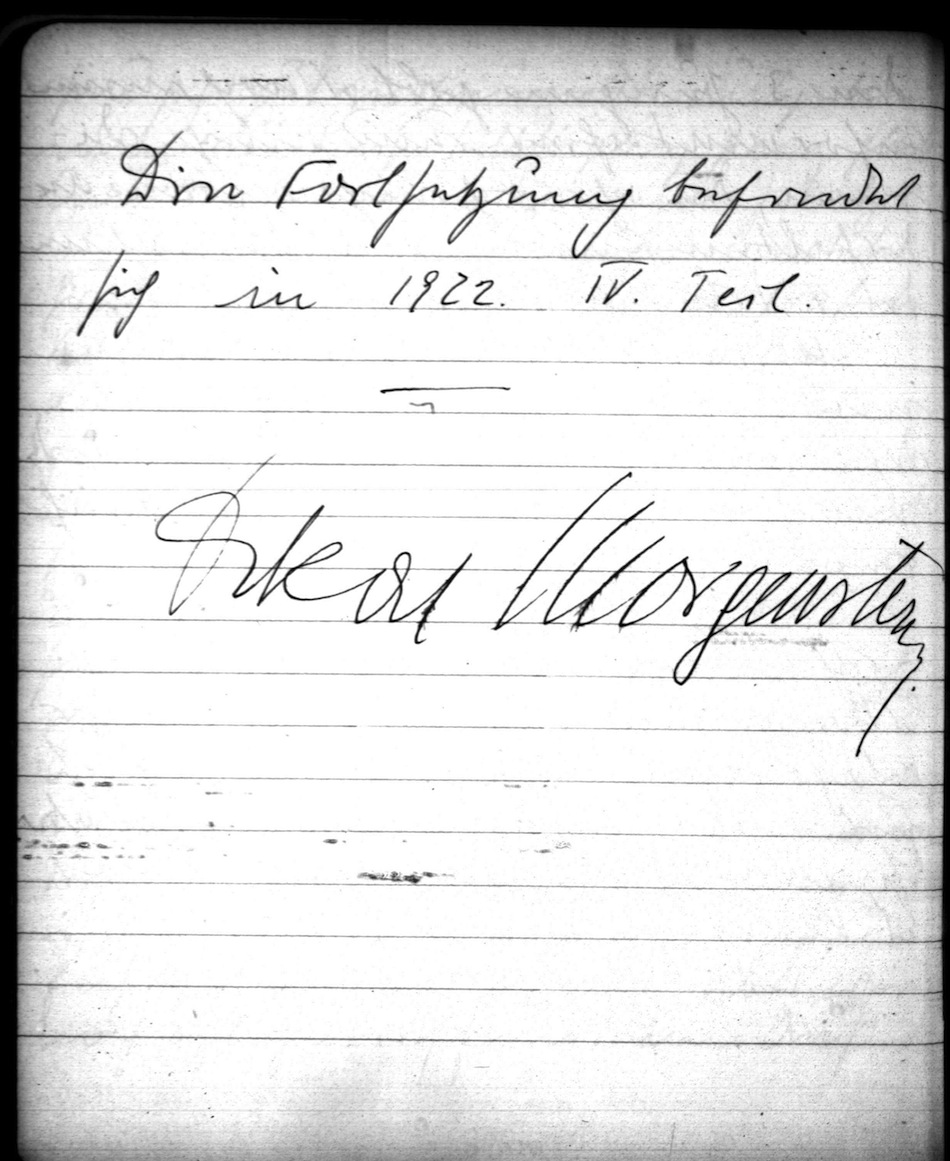 Die Fortsetzung befindet
sich in 1922. IV. Teil.
Oskar Morgenstern